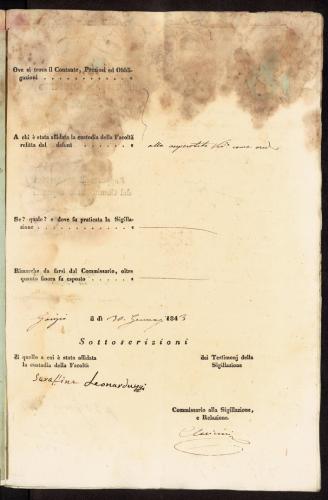 Ove si trova il Contante, Preziosi ed Obbli-
gazioni
A chi è stata affidata la custodia della Facoltà
relitta dal defunto alla superstite Ved. come ered.
Se? quale? e dove fu praticata la Sigilla-
zione
Rimarche da farsi dal Commissario, oltre
quanto finora fu esposto
li dì 30 Gennajo 1843
Sottoscrizioni
di quello a cui è stata affidata
la custodia della Facoltà
dei Testimonj della
Sigillazione
Serafina Leonarduzzi
Commissario alla Sigillazione,
e Relazione.